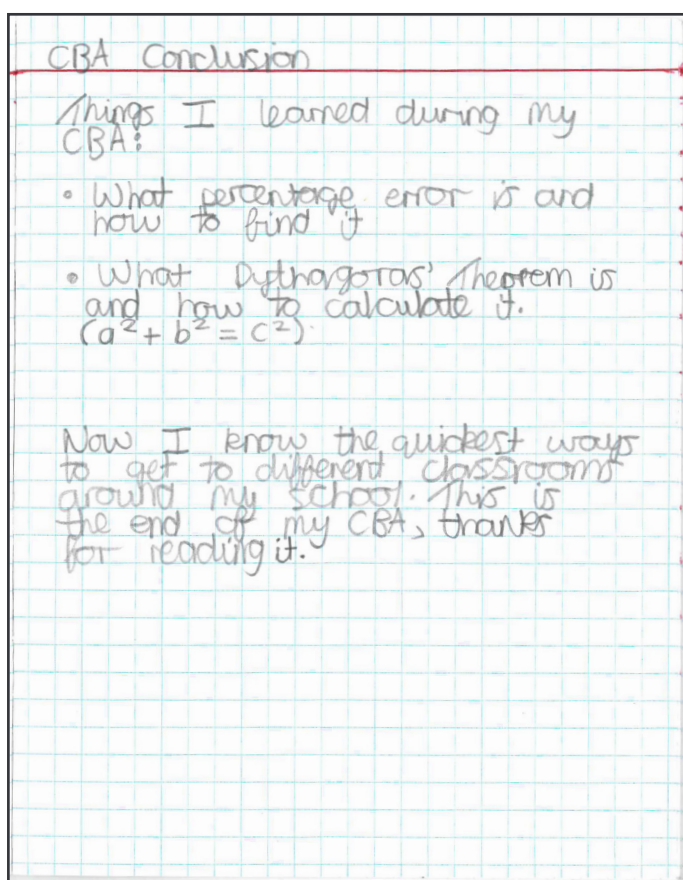 CBA Conclusion
Things I learned during my
CBA:
• What percentage error is and
how to find it
• What Pythagoras' Theorem is
and how to calculate it.
(a² + b² = c²).
Now I know the quickest ways
to get to different classrooms
around my school. This is
the end of my CBA, thanks
for reading it.